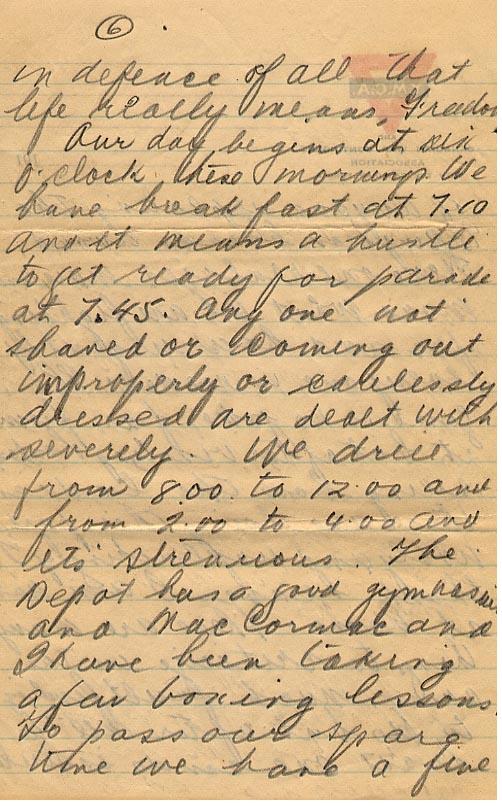 6
in defence of all that
life really means, Freedom
Our day begins at six
o'clock these mornings. We
have breakfast at 7.10
and it means a hustle
to get ready for parade
at 7.45. Any one not
shaved or coming out
improperly or carelessly
dressed are dealt with
severely. We drill
from 8.00 to 12.00 and
from 2.00 to 4.00 and
its strenuous. The
Depot has a good gymnasium
and MacCormac and
I have been taking
a few boxing lessons.
To pass our spare
time we have a fine
Y.M.C.A.
ASSOCIATION